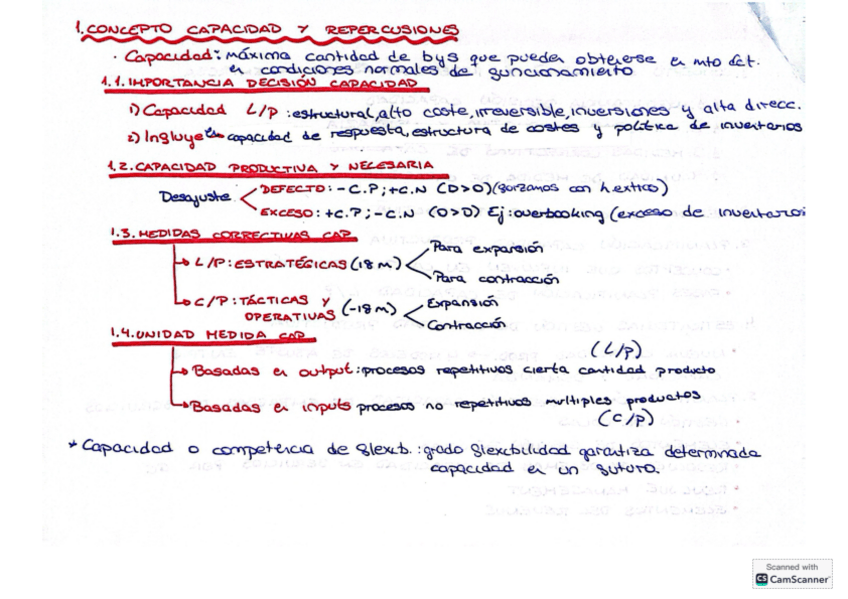 1. CONCEPTO CAPACIDAD Y REPERCUSIONES
· Capacidad: máxima cantidad de bys que pueden obtenerse en mto dct.
en condiciones normales de funcionamiento
1.1. IMPORTANCIA DECISIÓN CAPACIDAD
1) Capacidad L/P: estructural, alto coste, irreversible, inversiones y alta direcc.
2) Influye en capacidad de respuesta, estructura de costes y política de inventarios
1.2. CAPACIDAD PRODUCTIVA Y NECESARIA
Desajuste
DEFECTO: -C.P; +C.N (D>O) (forzamos con h.extras)
EXCESO: +C.P; -C.N (O>D) Ej: overbooking (exceso de inventarios
1.3. MEDIDAS CORRECTIVAS CAP
L/P: ESTRATÉGICAS (18 m)
Para expansión
Para contracción
C/P: TÁCTICAS Y OPERATIVAS (-18 m)
Expansión
Contracción
1.4. UNIDAD MEDIDA CAP
(L/P)
Basadas en output: procesos repetitivos cierta cantidad producto
Basadas en inputs procesos no repetitivos multiples productos
(C/P)
* Capacidad o competencia de flexib.: grado flexibilidad garantiza determinada
capacidad en un futuro.
Scanned with
CS CamScanner